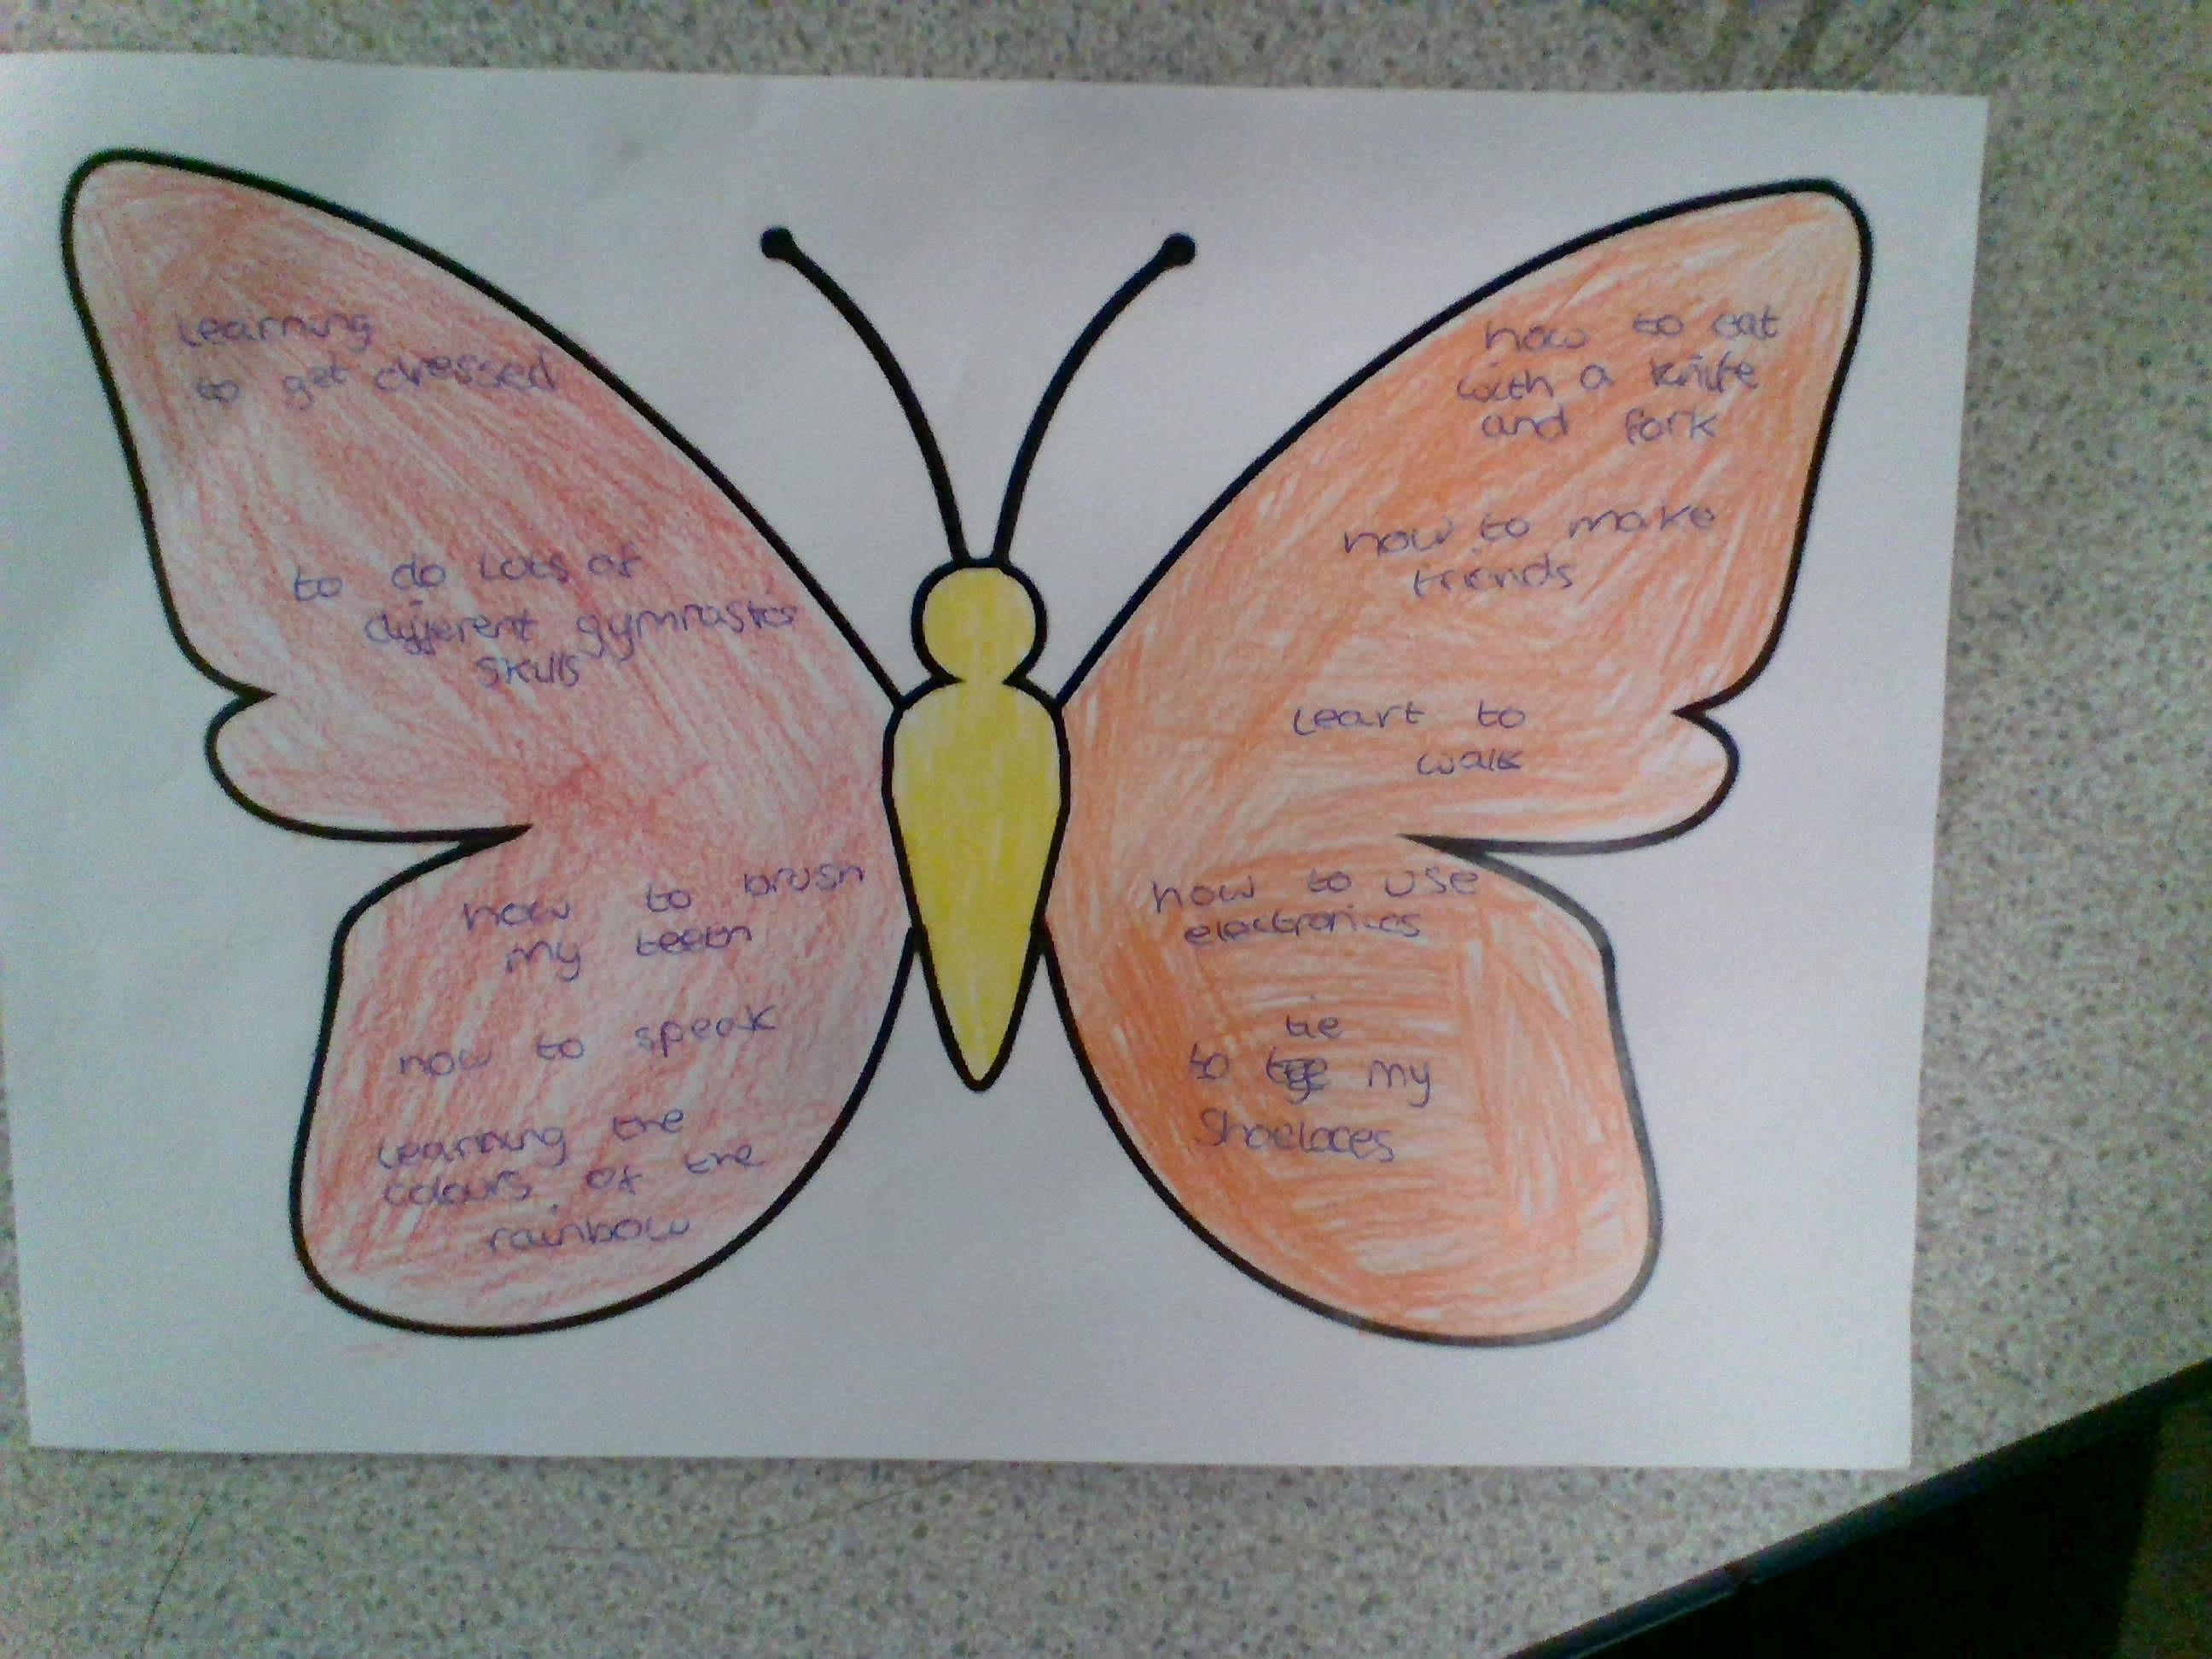 Learning
to get dressed
to do lots of
different gymnastics
skills
how to brush
my teeth
how to speak
Learning the
colours of the
rainbow
how to eat
with a knife
and fork
how to make
friends
Leart to
walk
how to use
electronics
tie
to my
Shoelaces